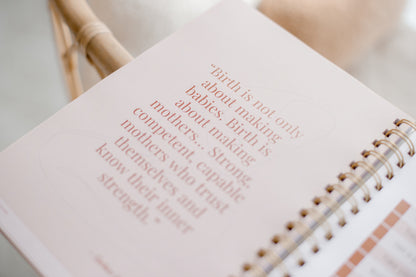 "Birth is not only
about making
babies. Birth is
about making
mothers... Strong,
competent, capable
mothers who trust
themselves and
know their inner
strength."